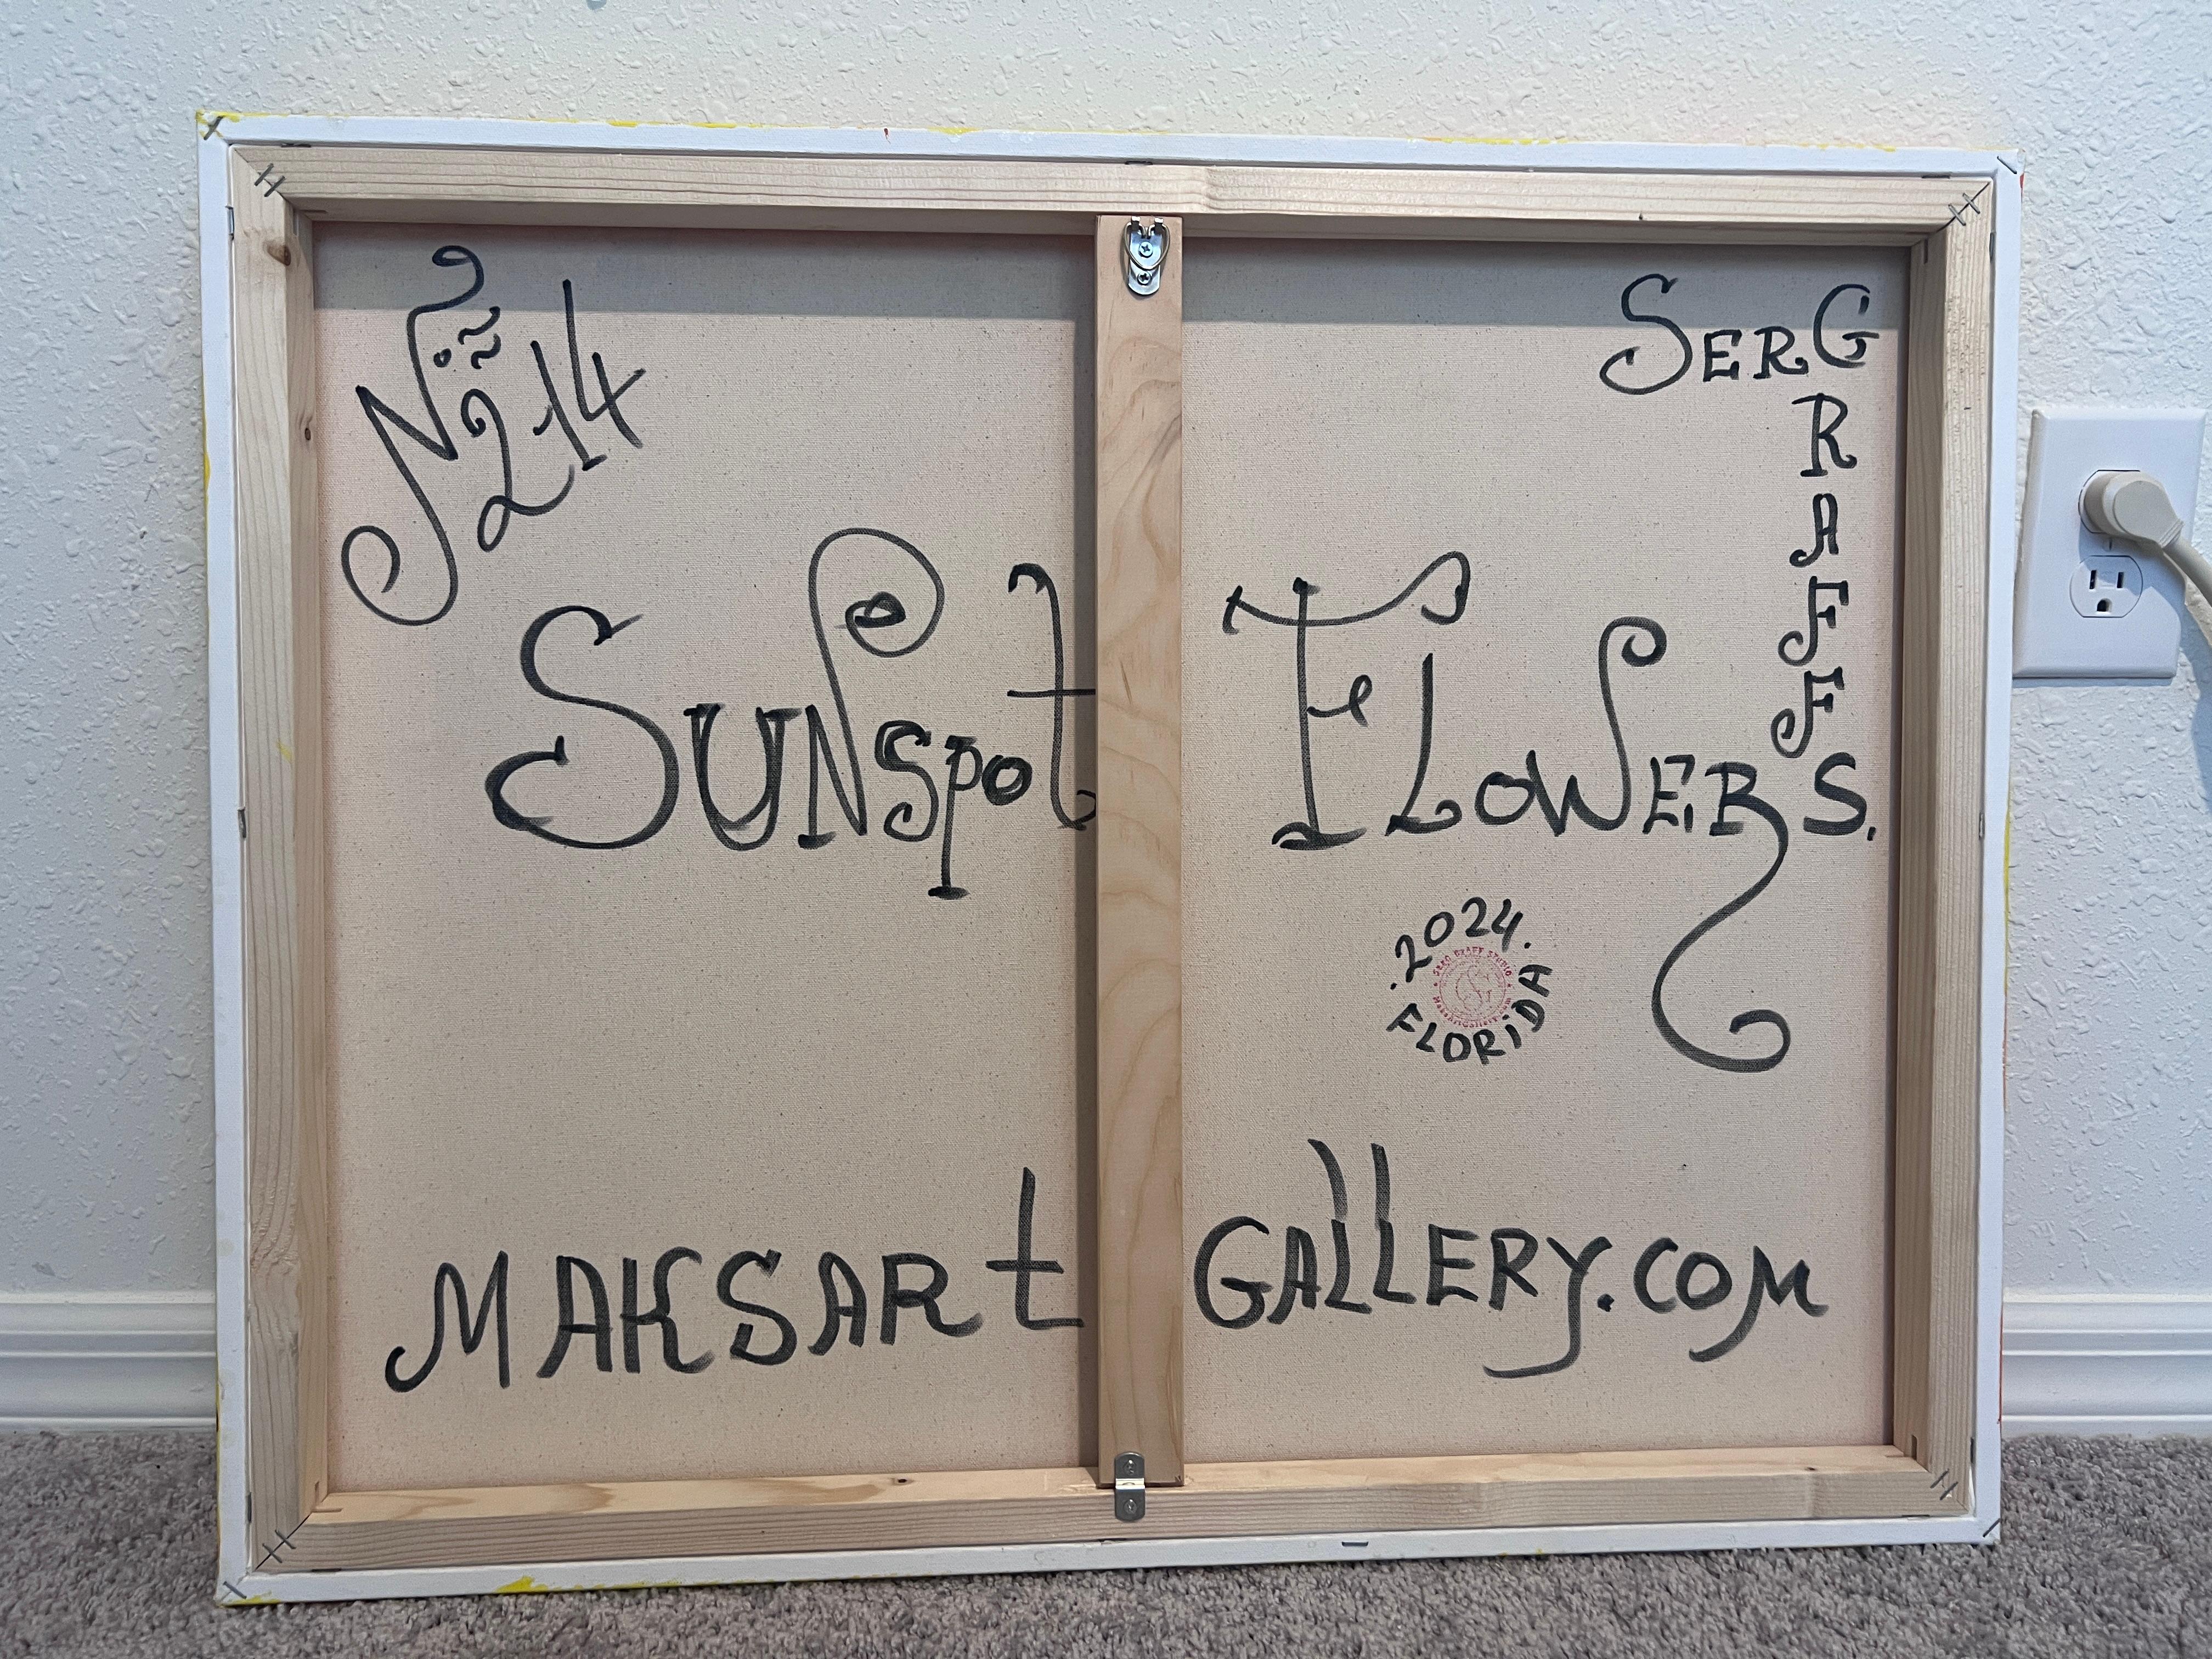 № 214
SERG
GRAFF
SUNSpot FLOWERS.
.2024.
SERG GRAFF STUDIO
SG
MaksArtGallery.com
FLORiDA
MAKSARt GALLERY.COM